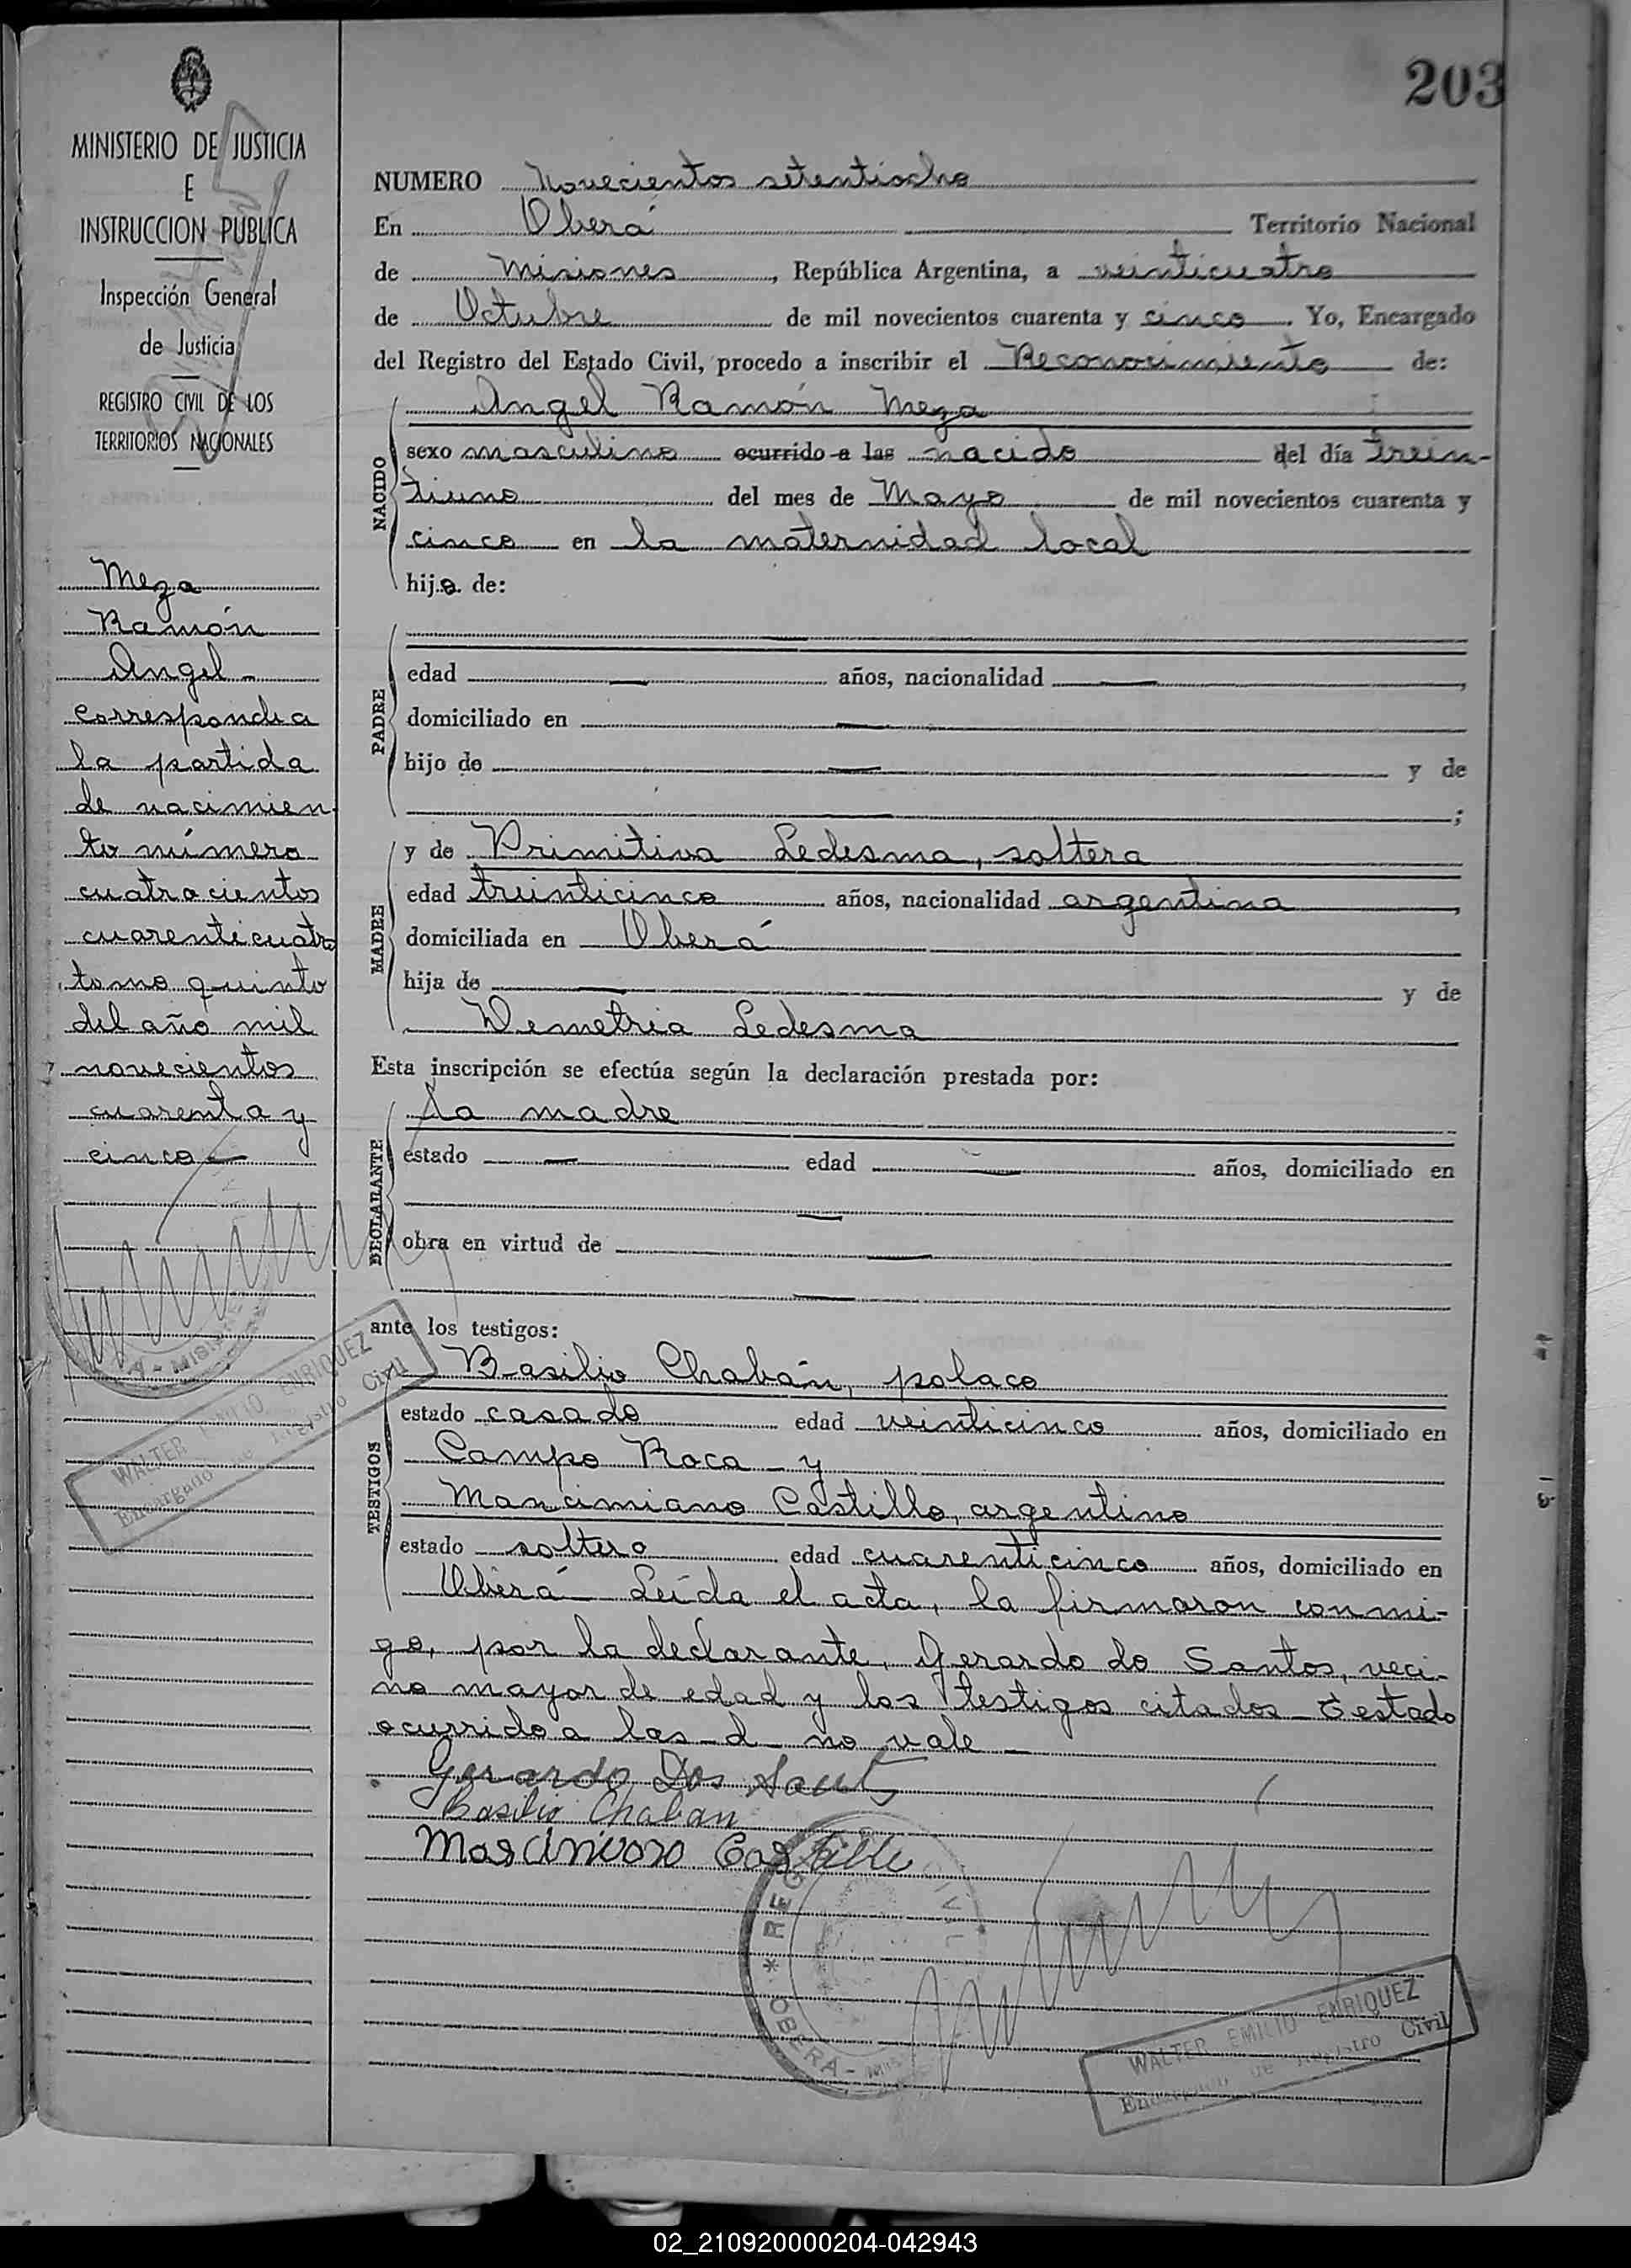 203
MINISTERIO DE JUSTICIA
E
INSTRUCCION PUBLICA
Inspección General
de Justicia
REGISTRO CIVIL DE LOS
TERRITORIOS NACIONALES
Meza
Ramón
Angel -
Corresponde a
la partida
de nacimien
to número
cuatrocientos
cuarenticuatro
tomo quinto
del año mil
novecientos
cuarenta y
cinco -
A - MISIONES
WALTER EMILIO ENRIQUEZ
Encargado de Registro Civil
NUMERO Novecientos setentiocho
En Oberá Territorio Nacional
de Misiones, República Argentina, a veinticuatro
de Octubre de mil novecientos cuarenta y cinco. Yo, Encargado
del Registro del Estado Civil, procedo a inscribir el Reconocimiento de:
NACIDO
Angel Ramón Meza
sexo masculino ocurrido a las nacido del día trein-
tiuno del mes de Mayo de mil novecientos cuarenta y
cinco en la maternidad local
hijo de:
PADRE
edad — años, nacionalidad —,
domiciliado en —
hijo de — y de
— ;
MADRE
y de Primitiva Ledesma, soltera
edad treinticinco años, nacionalidad argentina,
domiciliada en Oberá
hija de — y de
Demetria Ledesma
Esta inscripción se efectúa según la declaración prestada por:
DECLARANTE
la madre
estado — edad — años, domiciliado en
—
obra en virtud de —
—
ante los testigos:
TESTIGOS
Basilio Chabán, polaco
estado casado edad veinticinco años, domiciliado en
Campo Roca - y
Maximiano Castillo, argentino
estado soltero edad cuarenticinco años, domiciliado en
Oberá - Leída el acta, la firmaron conmi-
go, por la declarante, Gerardo do Santos, veci-
no mayor de edad y los testigos citados - Testado
ocurrido a las - d - no vale -
Gerardo Dos Sant
Basilio Chaban
Castillo
* REG CIVIL
OBERA - MIS
WALTER EMILIO ENRIQUEZ
Encargado de Registro Civil
02_210920000204-042943